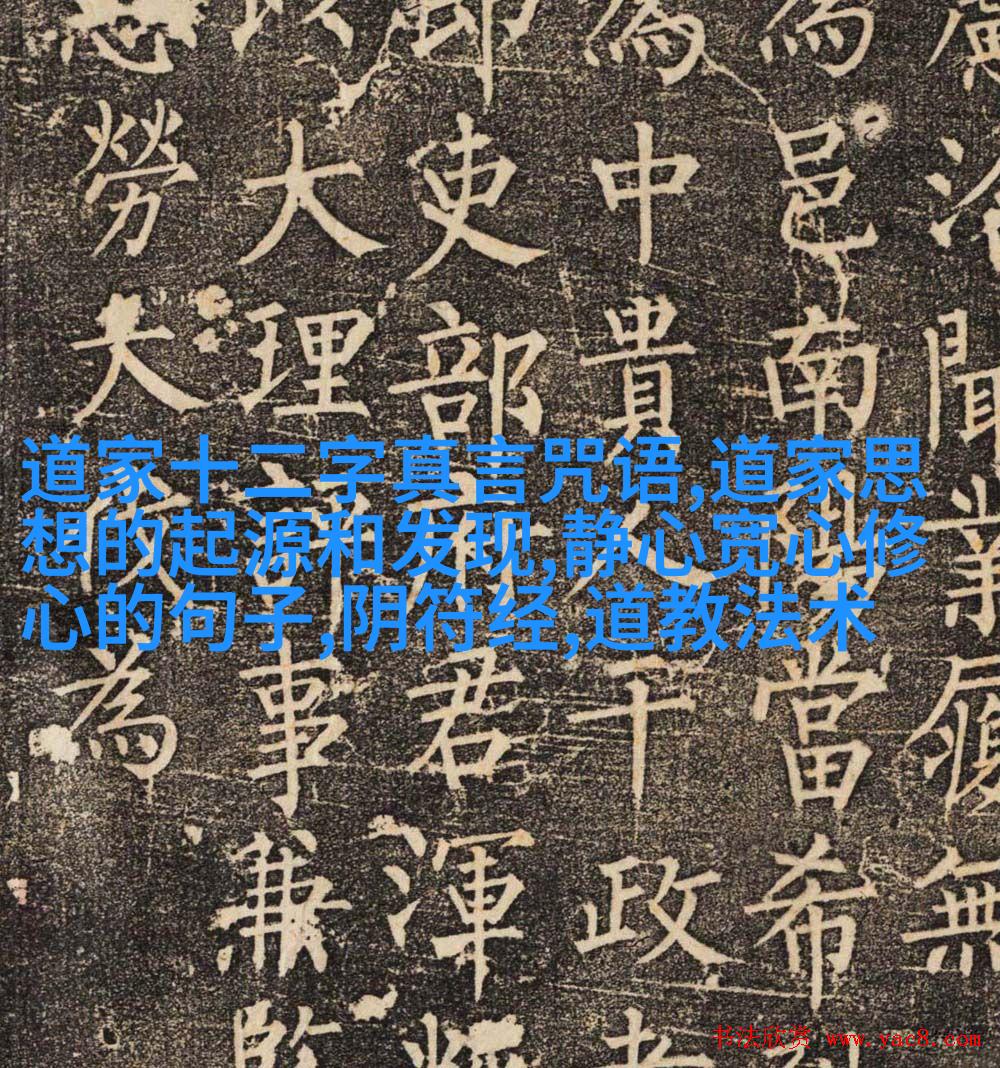 道家十二字真言咒语,道家思
想的起源和发现,静心宽心修
心的句子,阴符经,道教法术
聞業無
為邑南當希
為中貴人干政
郎吏部府君渾
大理評事兼監
勞大故為
书法欣赏 www.yac8.com